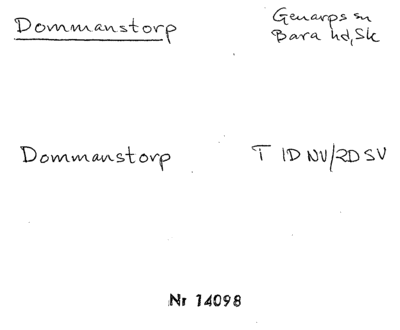 Dommanstorp
Genarps sn
Bara hd, Sk
Dommanstorp T 1D NV/2D SV
Nr 14098